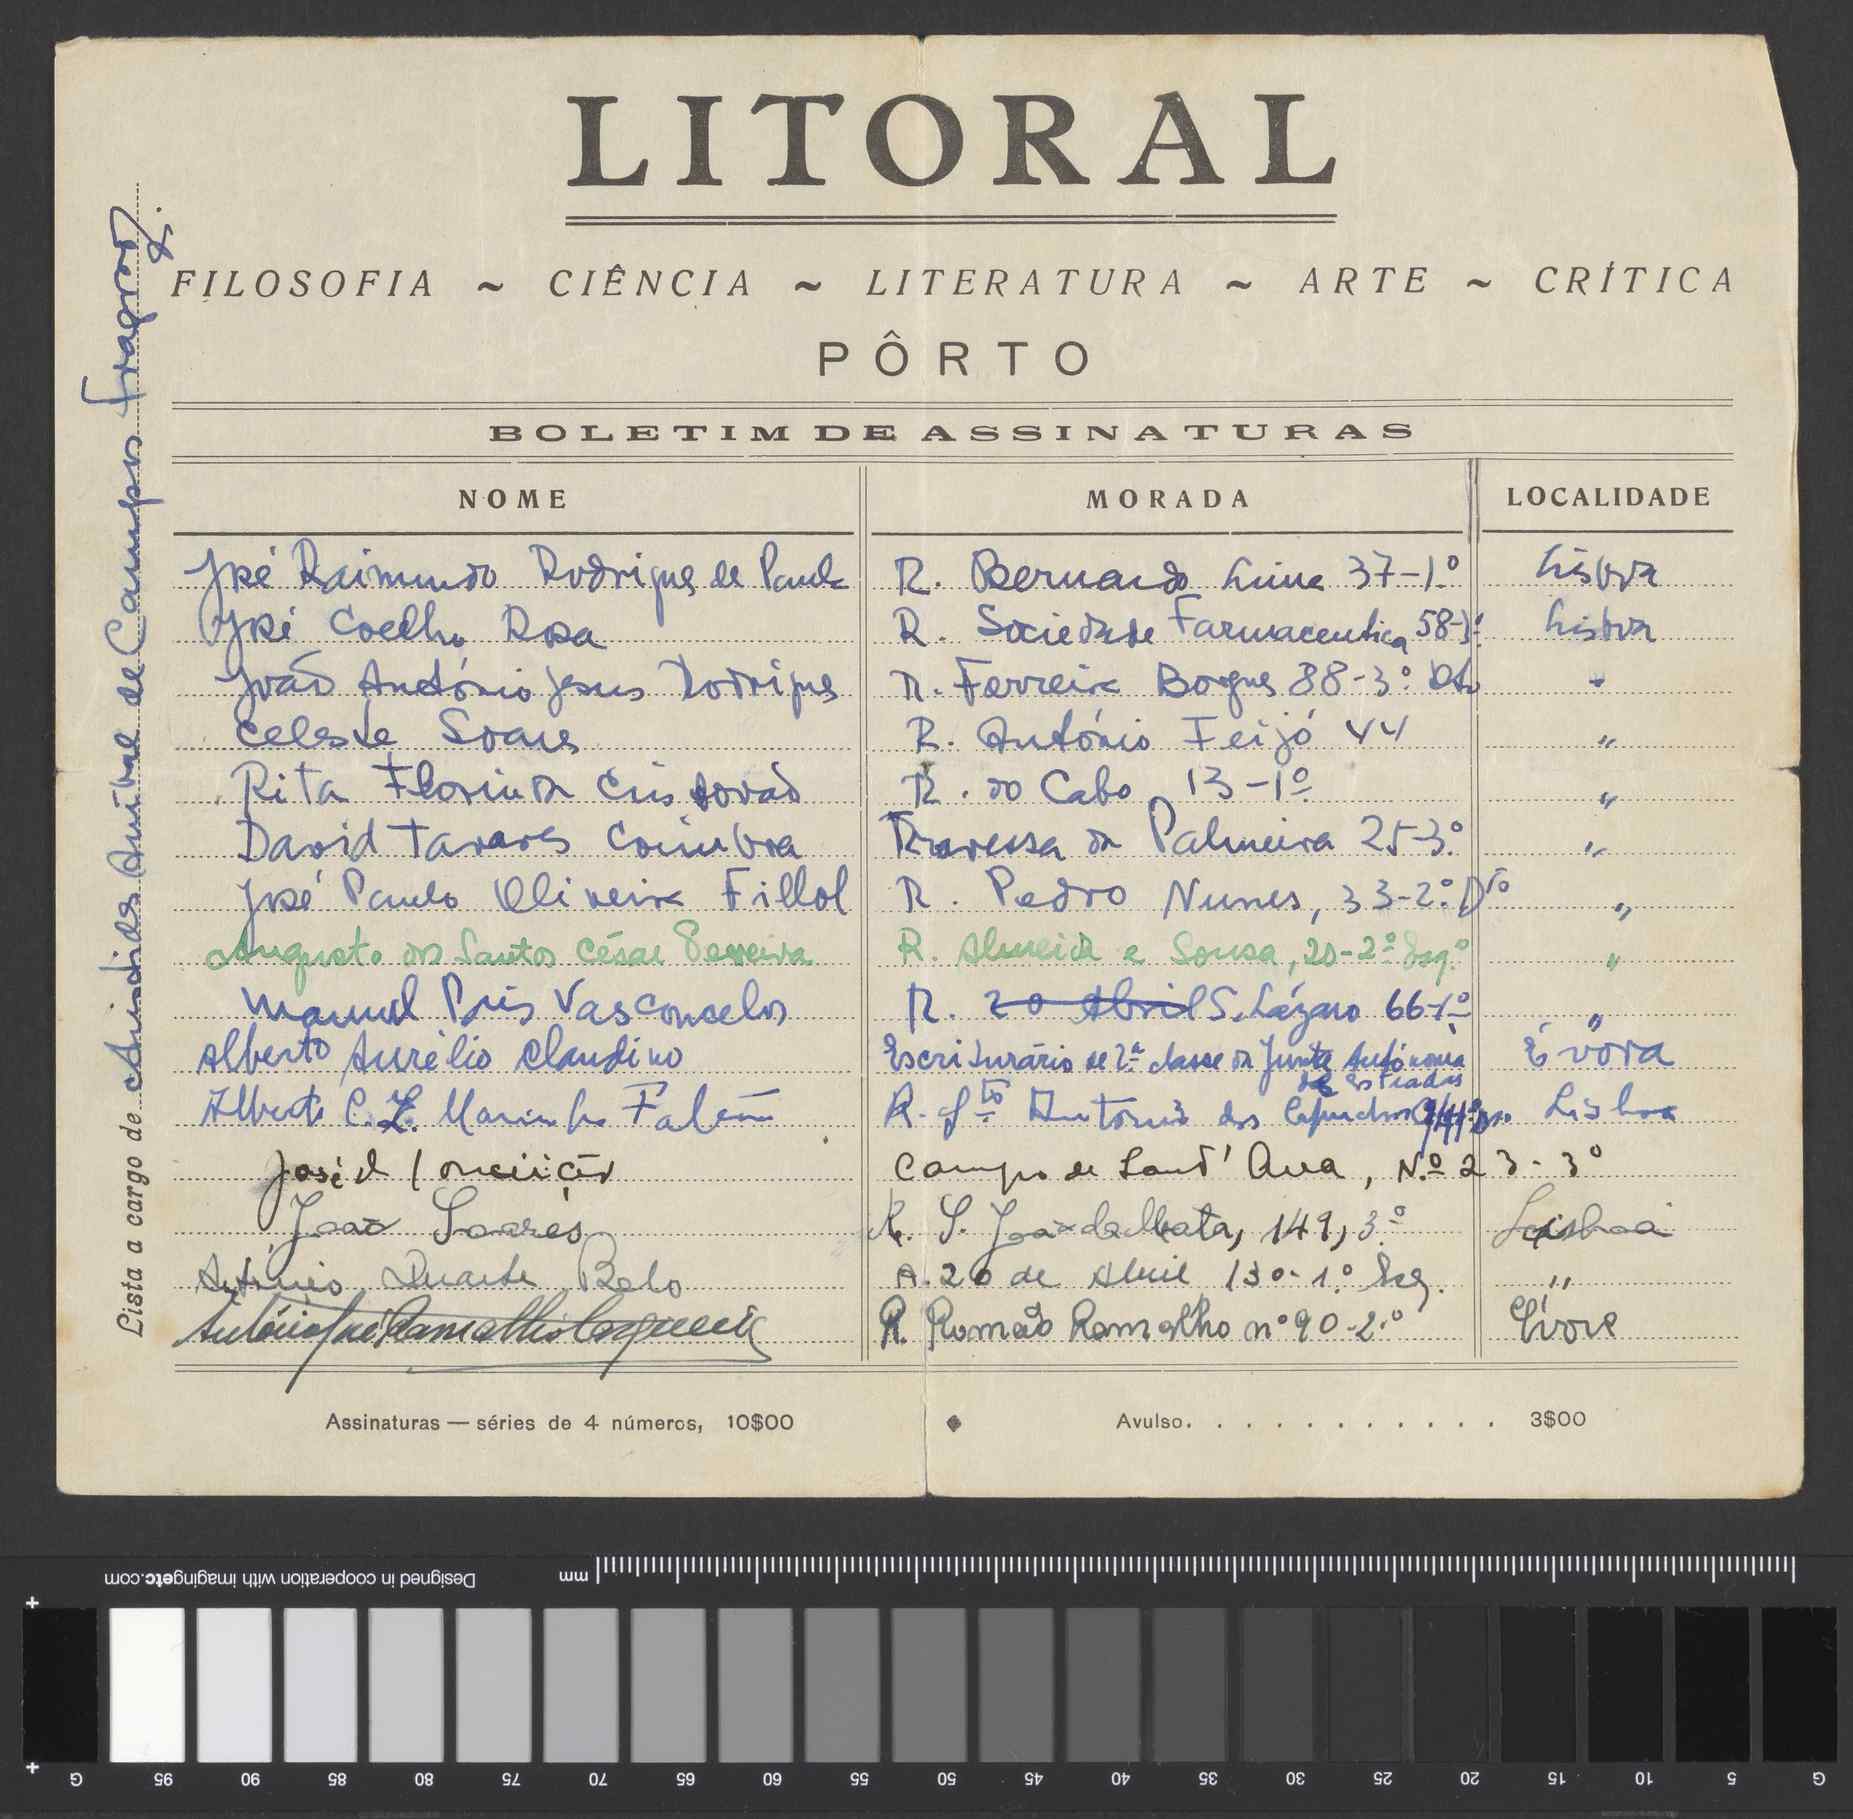 LITORAL
FILOSOFIA ~ CIÊNCIA ~ LITERATURA ~ ARTE ~ CRÍTICA
PÔRTO
BOLETIM DE ASSINATURAS
NOME MORADA LOCALIDADE
José Raimundo Rodrigues de Paula R. Bernardo Lima 37-1.º Lisboa
José Coelho Rosa R. Sociedade Farmaceutica 58- Lisboa
João António Jesus Rodrigues R. Ferreira Borges 88-3.º Dto "
Celeste Soares R. António Feijó 44 "
Rita Florinda Cristovão R. do Cabo 13-1º "
David Tavares Coimbra Travessa da Palmeira 25-3.º "
José Paulo Oliveira Fillol R. Pedro Nunes, 33-2.º Dto "
Augusto dos Santos César Ferreira R. Almeida e Sousa, 20-2º Esq.º "
Manuel Pais Vasconcelos R. 20 Abril S. Lázaro 66-1º "
Alberto Aurélio Claudino Escriturário de 2ª classe da Junta Autónoma de Estradas Évora
Alberto C. L. Marinho Falcão R. Sto António dos Capuchos Lisboa
José d Conceição Campo de Sant'Ana, N.º 23-3º
João Soares R. S. João da Mata, 149, 3.º Lisboa
António Duarte Belo R. 20 de Abril 130-1.º Esq. "
António José Ramalho Cerqueira R. Romão Ramalho nº 90-2.º Évora
Assinaturas — séries de 4 números, 10$00 Avulso. . . . . . . . . . . 3$00
Lista a cargo de Arístides Aníbal de Campos Fragoso
Designed in cooperation with imagingetc.com mm
G 95 90 85 80 75 70 65 60 55 50 45 40 35 30 25 20 15 10 5 G